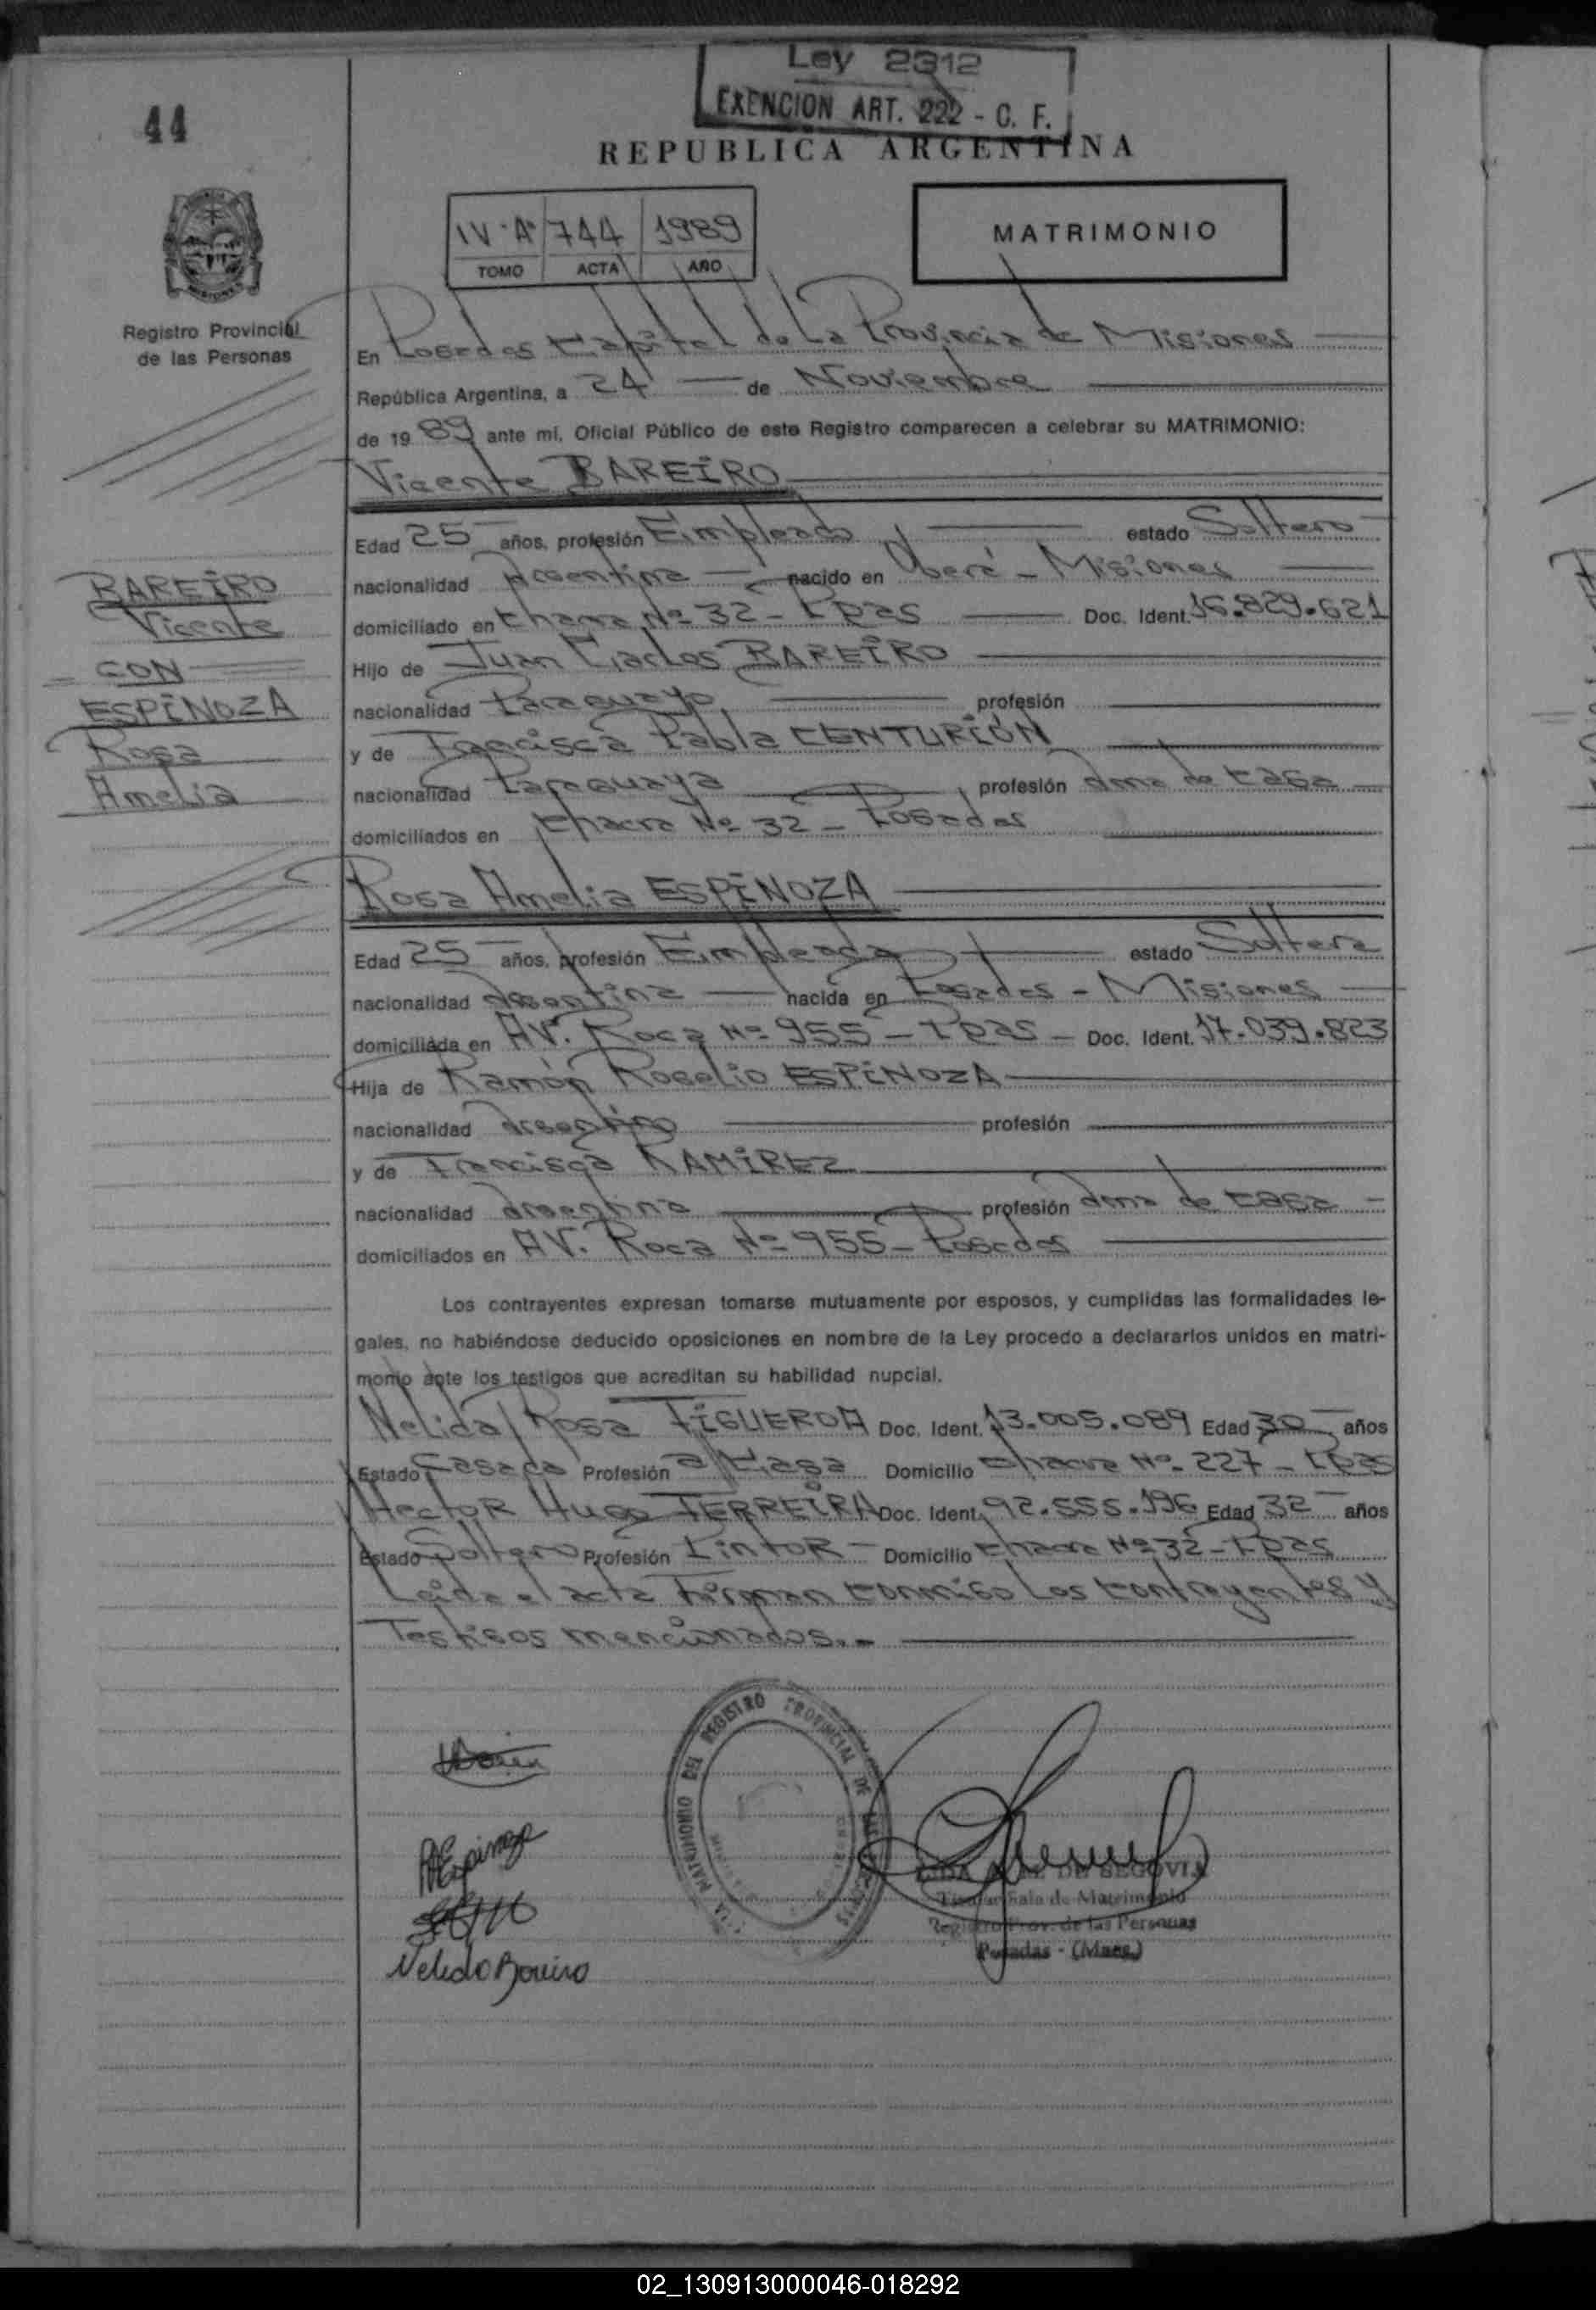 Ley 2312
EXENCION ART. 222 - C. F.
44
REPUBLICA ARGENTINA
IV·Aº 744 1989
TOMO ACTA AÑO
MATRIMONIO
Registro Provincial
de las Personas
En Posadas Capital de la Provincia de Misiones
República Argentina, a 24 de Noviembre
de 1989 ante mí, Oficial Público de este Registro comparecen a celebrar su MATRIMONIO:
Vicente BAREIRO
Edad 25 años, profesión Empleado estado Soltero
nacionalidad Argentina nacido en Oberá - Misiones
domiciliado en Chacra Nº 32 - Pdas Doc. Ident. 16.829.621
Hijo de Juan Carlos BAREIRO
nacionalidad Paraguayo profesión
y de Francisca Pabla CENTURIÓN
nacionalidad Paraguaya profesión ama de Casa
domiciliados en Chacra Nº 32 - Posadas
BAREIRO
Vicente
CON
ESPINOZA
Rosa
Amelia
Rosa Amelia ESPINOZA
Edad 25 años, profesión Empleada estado Soltera
nacionalidad Argentina nacida en Posadas - Misiones
domiciliada en AV. Roca Nº 955 - Pdas - Doc. Ident. 17.039.823
Hija de Ramón Rogelio ESPINOZA
nacionalidad argentino profesión
y de Francisca RAMIREZ
nacionalidad argentina profesión ama de Casa -
domiciliados en AV. Roca Nº 955 - Posadas
Los contrayentes expresan tomarse mutuamente por esposos, y cumplidas las formalidades le-
gales, no habiéndose deducido oposiciones en nombre de la Ley procedo a declararlos unidos en matri-
monio ante los testigos que acreditan su habilidad nupcial.
Nelida Rosa FIGUEROA Doc. Ident. 13.005.089 Edad 30 años
Estado Casada Profesión a/Casa Domicilio Chacra Nº 227 - Pdas
Hector Hugo FERREIRA Doc. Ident. 92.555.196 Edad 32 años
Estado Soltero Profesión Pintor - Domicilio Chacra Nº 32 - Pdas
Leida el acta Firman conmigo los contrayentes y
Testigos mencionados.-
MATRIMONIO DEL REGISTRO PROVINCIAL DE LAS
RAEspinoza
DE SEGOVIA
Titular Sala de Matrimonio
Registro Prov. de las Personas
Posadas - (Mnes.)
02_130913000046-018292